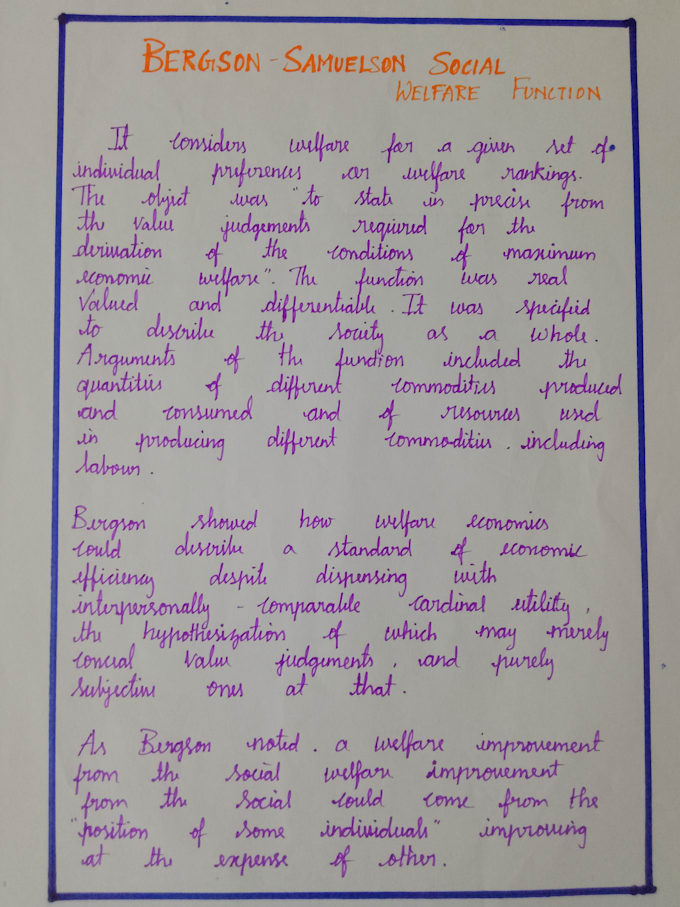 BERGSON - SAMUELSON SOCIAL
WELFARE FUNCTION
It considers welfare for a given set of
individual preferences or welfare rankings.
The object was "to state in precise from
the value judgements required for the
derivation of the conditions of maximum
economic welfare". The function was real
valued and differentiable. It was specified
to describe the society as a whole.
Arguments of the function included the
quantities of different commodities produced
and consumed and of resources used
in producing different commodities. including
labour.
Bergson showed how welfare economics
could describe a standard of economic
efficiency despite dispensing with
interpersonally - comparable cardinal utility,
the hypothesization of which may merely
conceal value judgements, and purely
subjective ones at that.
As Bergson noted. a welfare improvement
from the social welfare improvement
from the social could come from the
"position of some individuals" improving
at the expense of other.